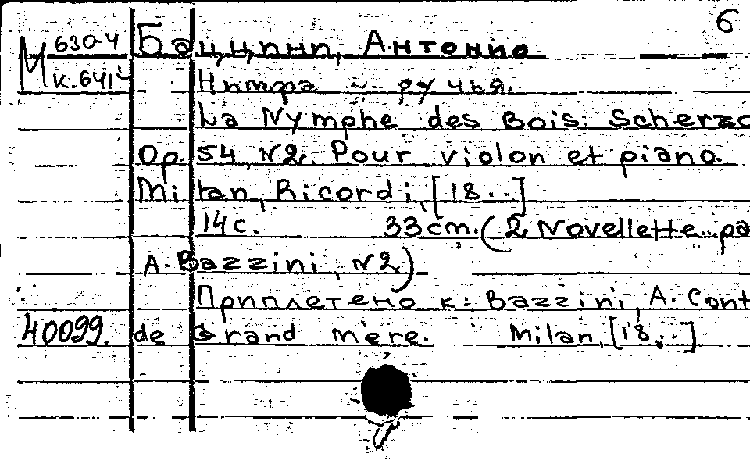 6
М 630-4 Баццини, Антонио
к.641
Нимфа ручья.
La Nymphe des Bois. Scherzo
Op. 54, N2. Pour violon et piano.
Milan, Ricordi, [18..]
14 с. 33 cm. (2 Novellette pa
A. Bazzini, N2)
Приплетено к: Bazzini, A. Cont
40099. de Grand mère. Milan, [18..]